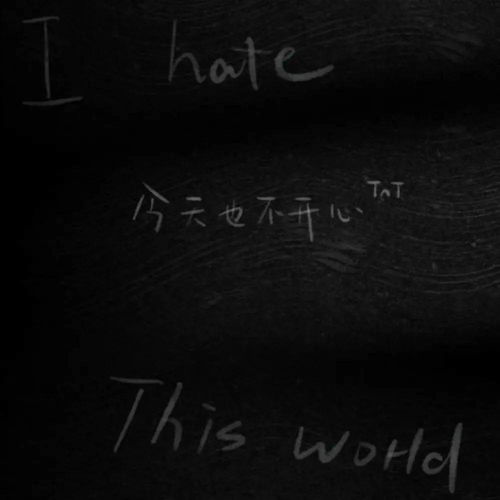 I hate
今天也不开心TnT
This world